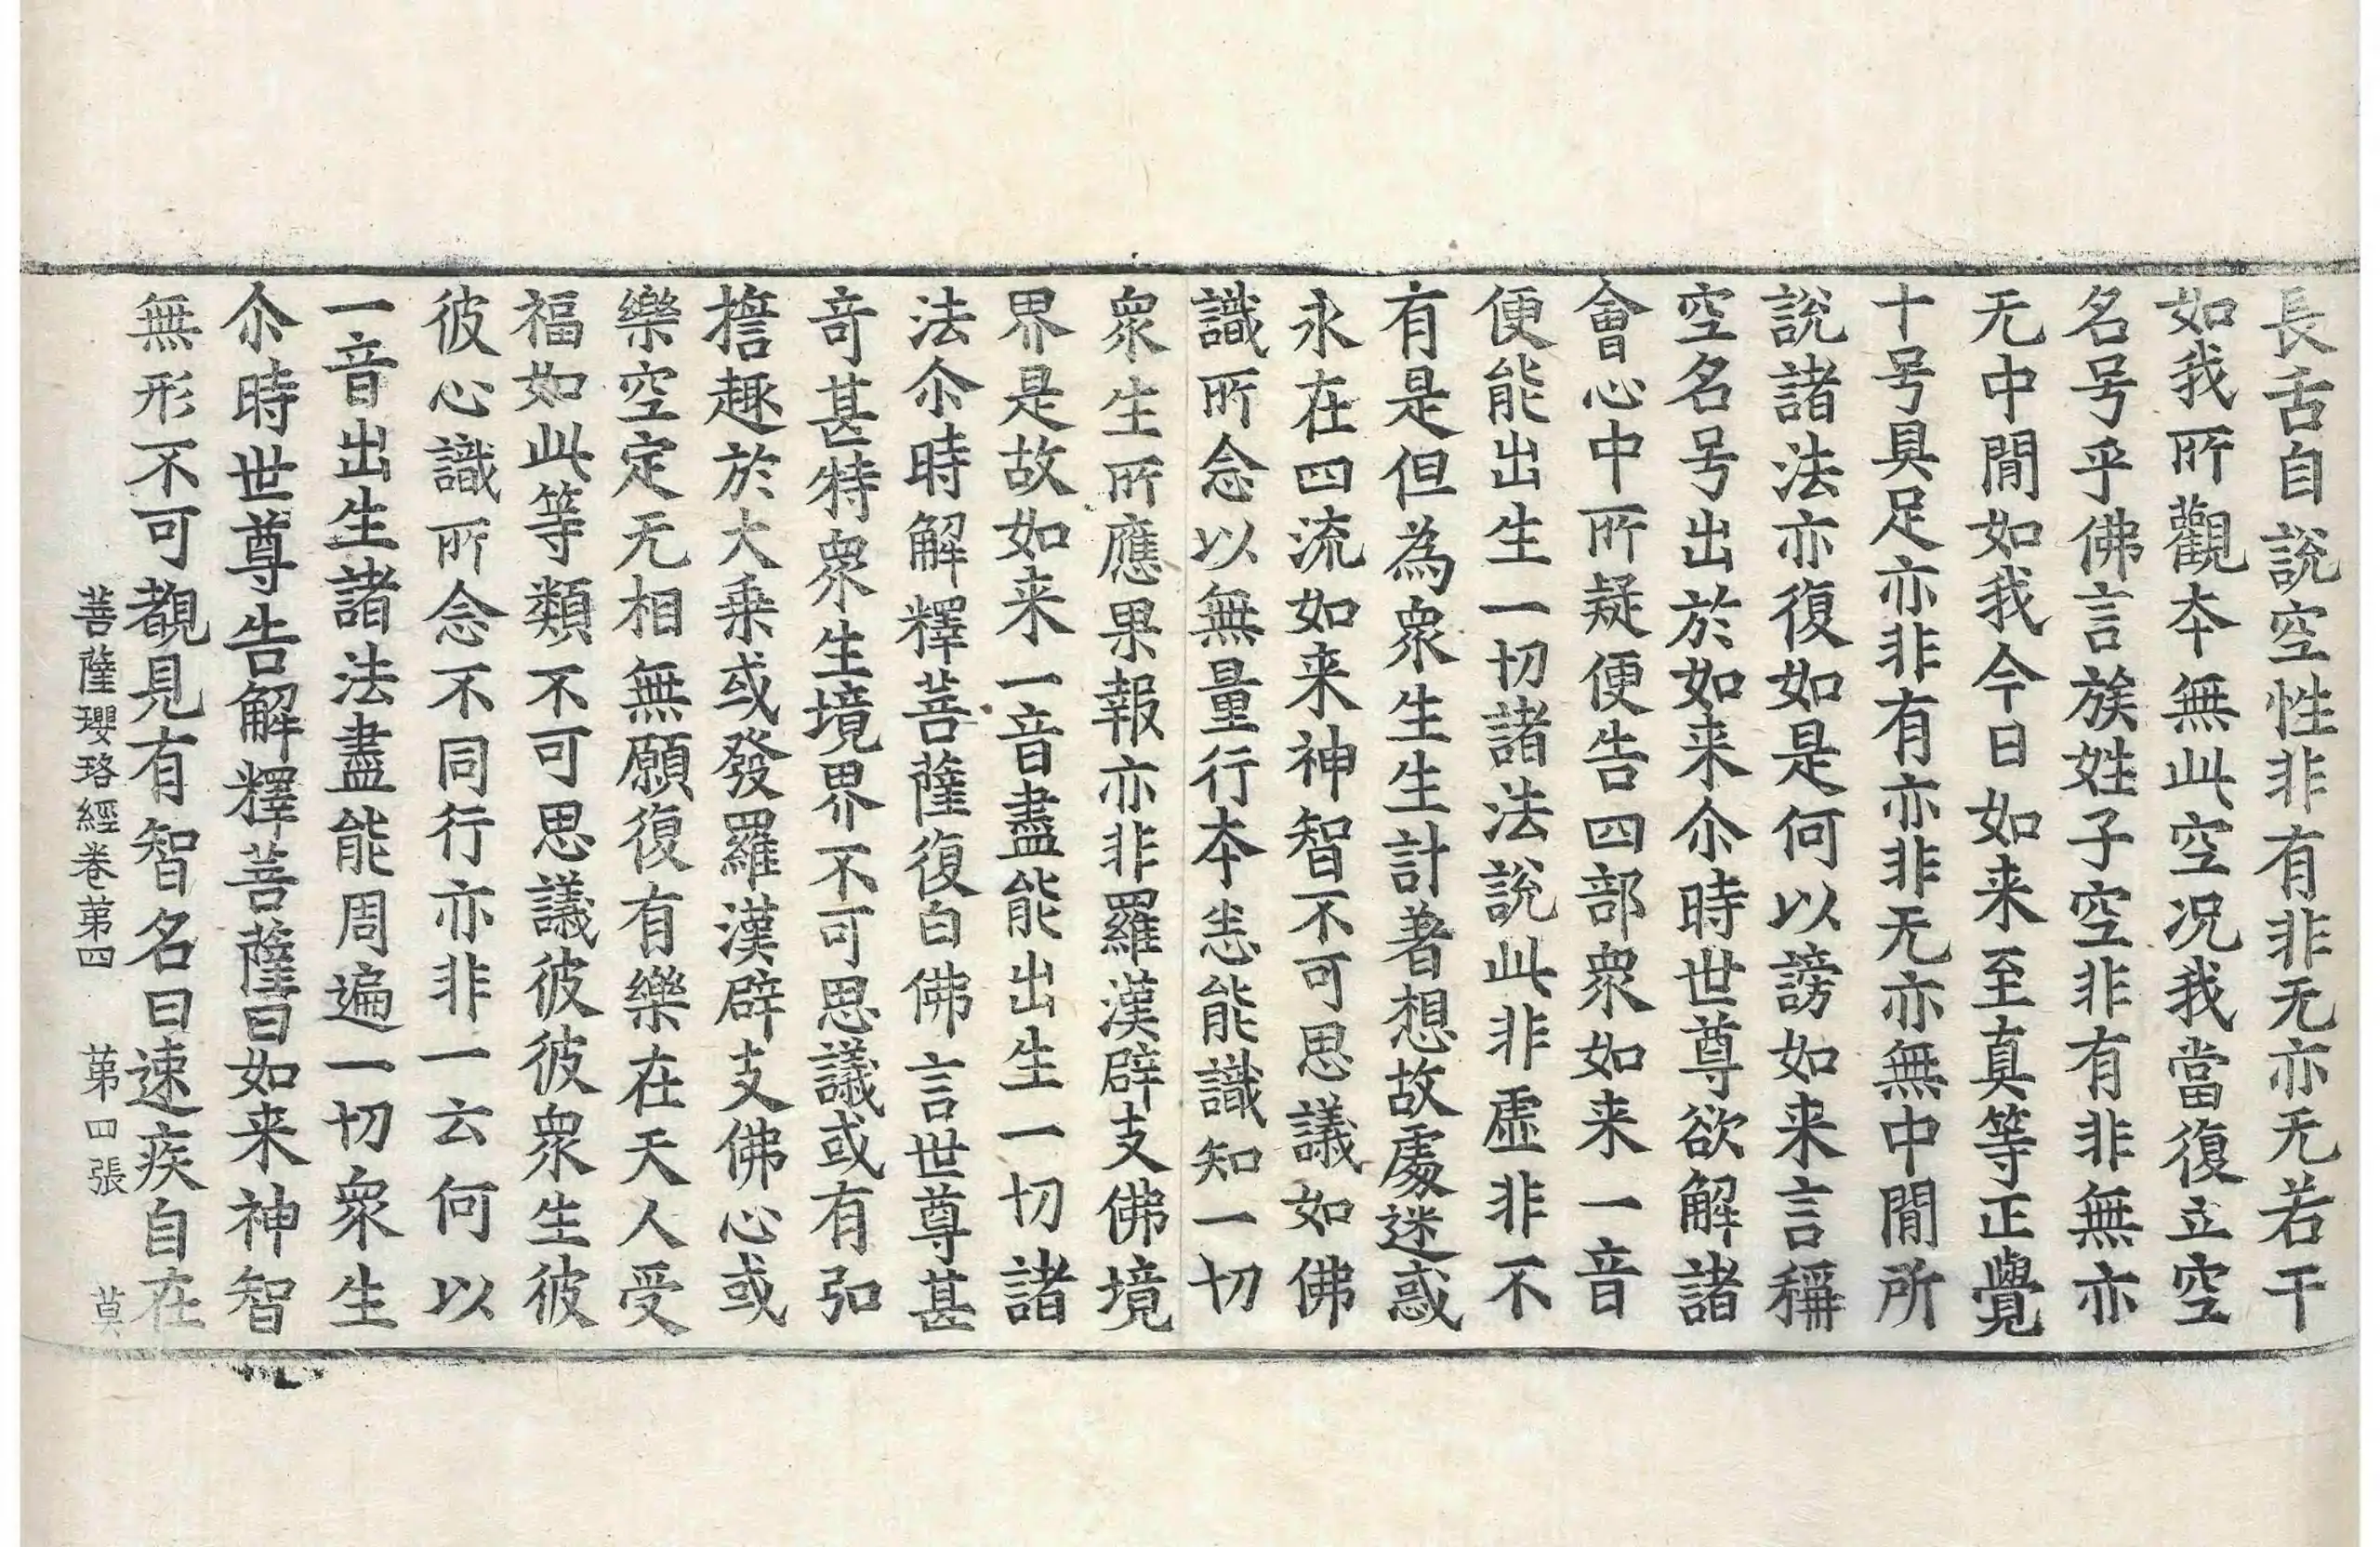 長舌自說空性非有非无亦无若干
如我所觀本無此空况我當復立空
名号乎佛言族姓子空非有非無亦
无中閒如我今日如来至真等正覺
十号具足亦非有亦非无亦無中閒所
說諸法亦復如是何以謗如来言稱
空名号出於如来尒時世尊欲解諸
會心中所疑便告四部衆如来一音
便能出生一切諸法說此非虛非不
有是但為衆生生計著想故處迷惑
永在四流如来神智不可思議如佛
識所念以無量行本悉能識知一切
衆生所應果報亦非羅漢辟支佛境
界是故如来一音盡能出生一切諸
法尒時解釋菩薩復白佛言世尊甚
奇甚特衆生境界不可思議或有弘
擔趣於大乗或發羅漢辟支佛心或
樂空定无相無願復有樂在天人受
福如此等類不可思議彼彼衆生彼
彼心識所念不同行亦非一云何以
一音出生諸法盡能周遍一切衆生
尒時世尊告解釋菩薩曰如来神智
無形不可覩見有智名曰速疾自在
菩薩瓔珞經卷苐四 苐四張 莫